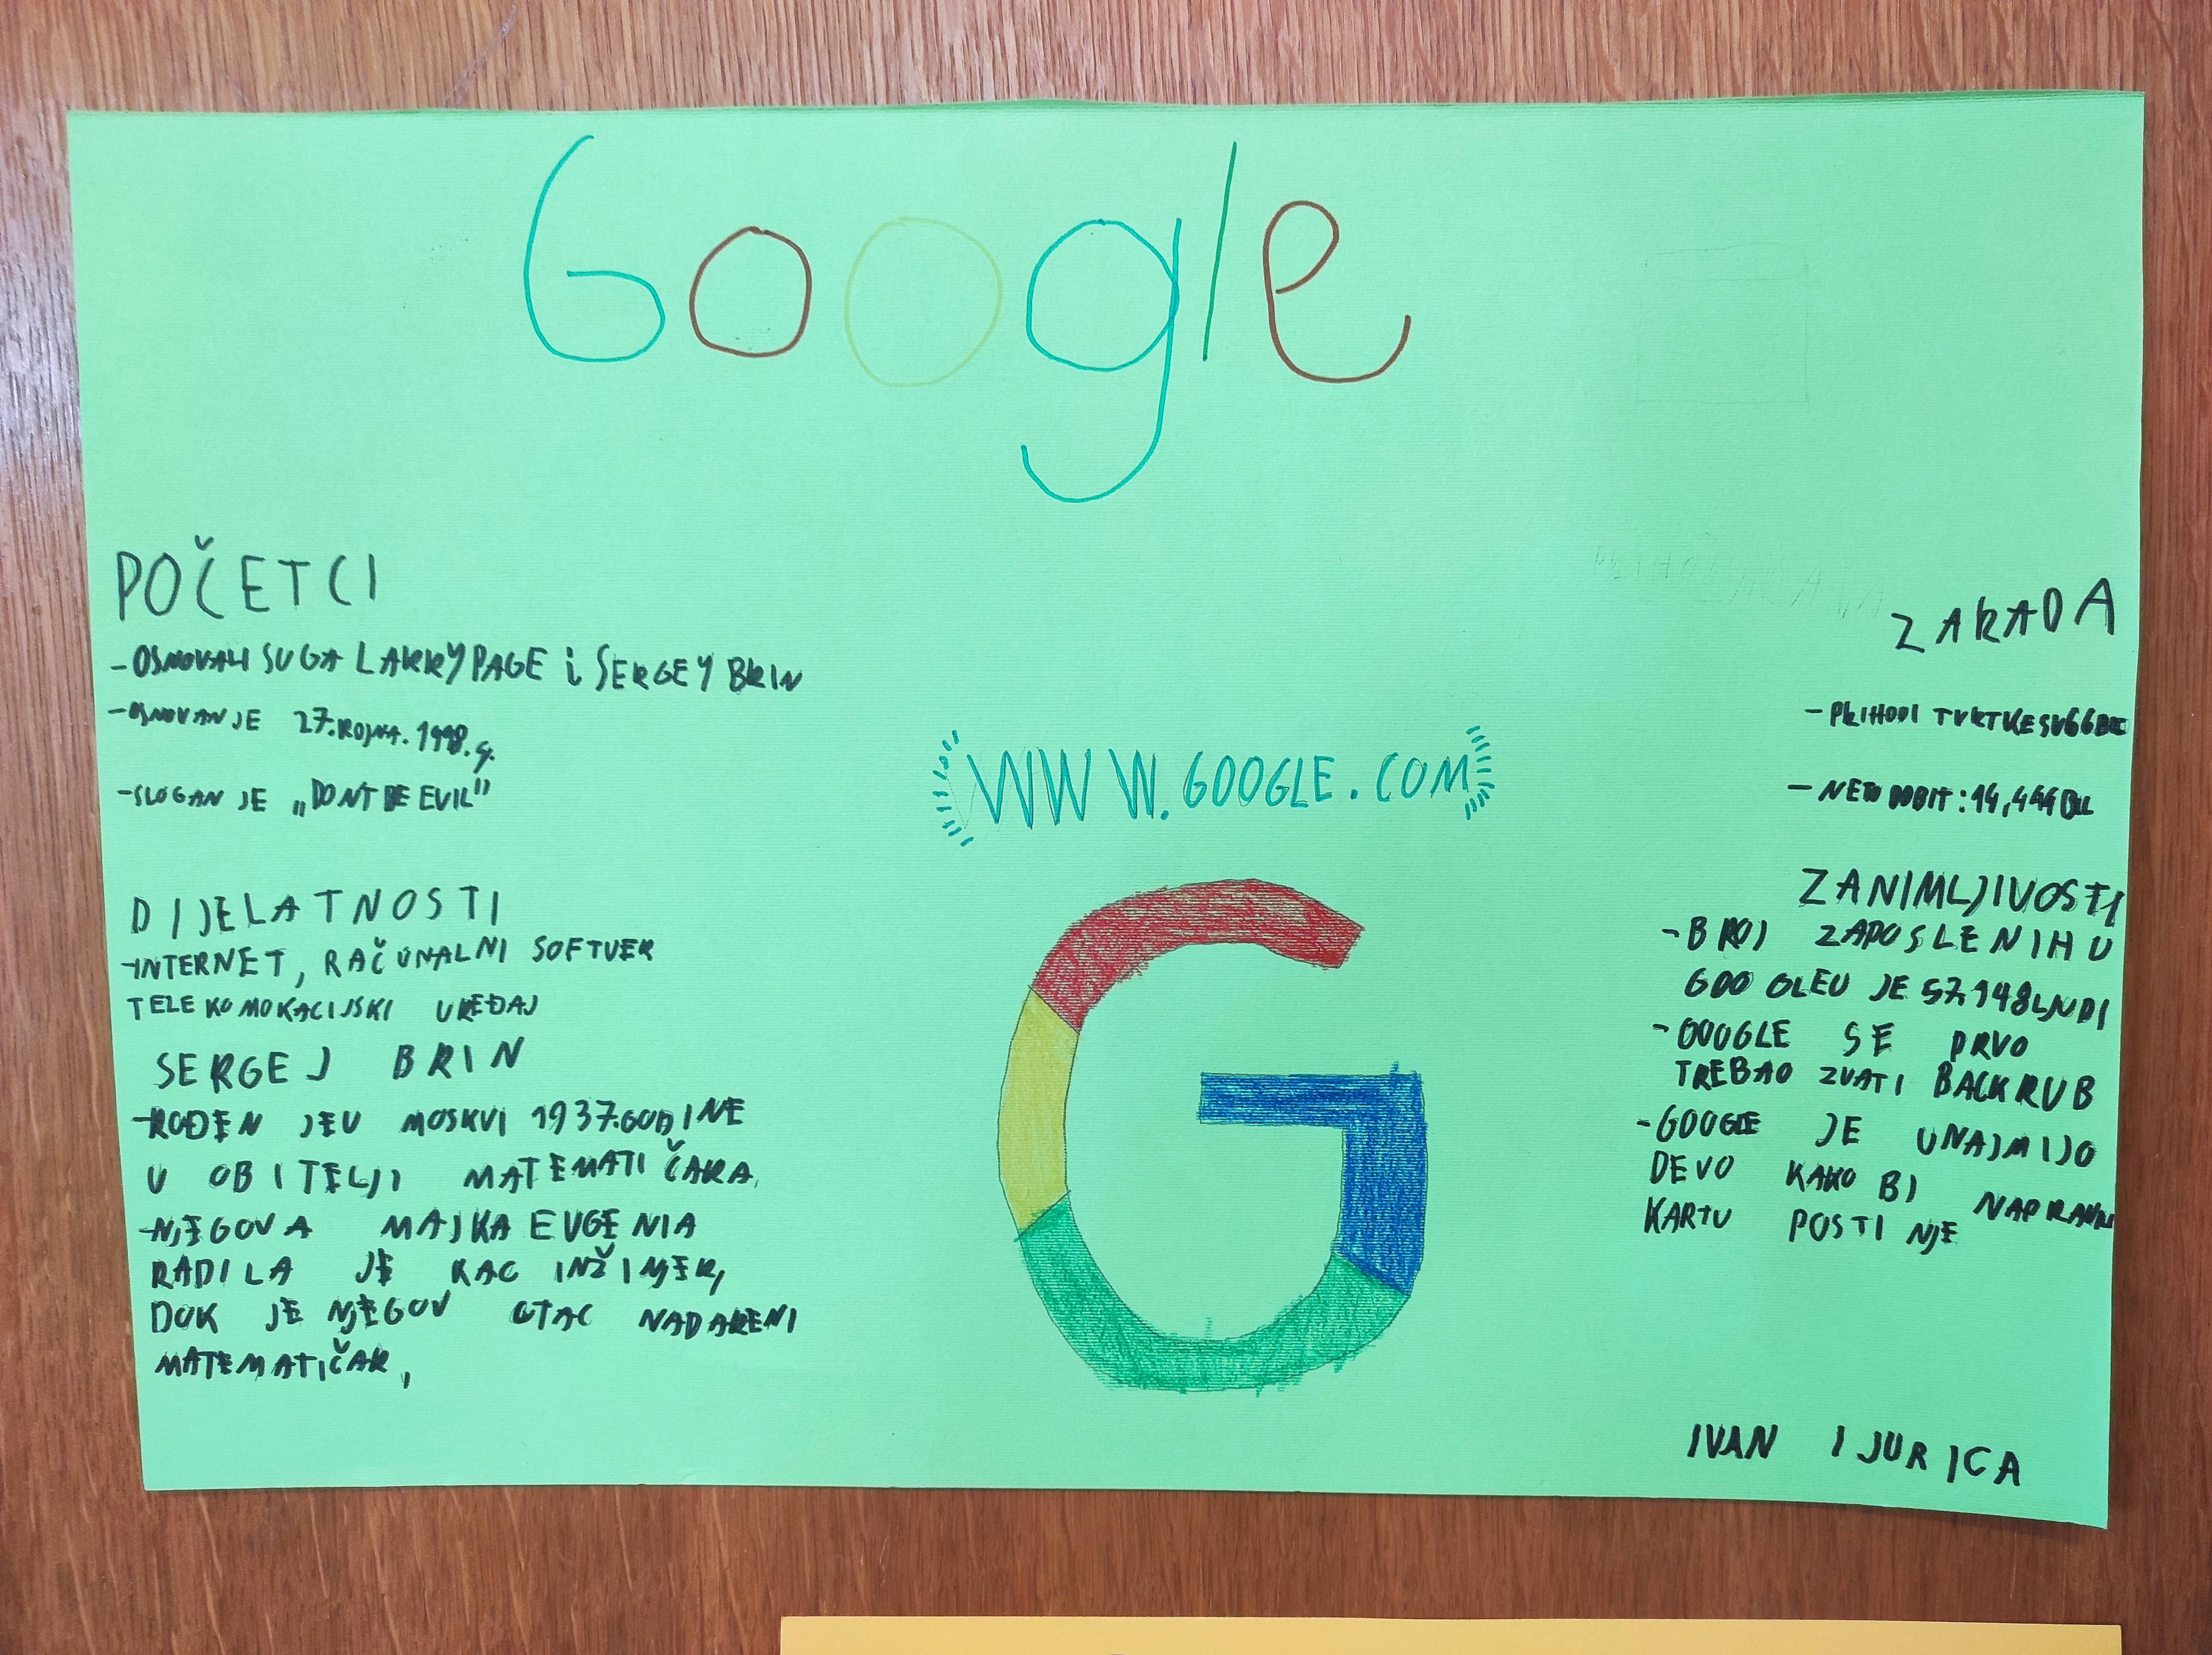 Google
POČETCI
-OSNOVALI SU GA LARRY PAGE i SERGEY BRIN
-OSNOVANJE 27. ROJNA. 1998. g.
-SLOGAN JE „DONT BE EVIL"
DIJELATNOSTI
-INTERNET, RAČUNALNI SOFTVER
TELEKOMOKACIJSKI UREĐAJ
SERGEJ BRIN
-ROĐEN JE U MOSKVI 1937. GODINE
U OBITELJI MATEMATIČARA.
-NJEGOVA MAJKA EVGENIA
RADILA JE KAO INŽINJER,
DOK JE NJEGOV OTAC NADARENI
MATEMATIČAR,
WWW.GOOGLE.COM
ZARADA
-PRIHODI TVRTKE SU 66
-NETO DOBIT: 14,444
ZANIMLJIVOSTI
-BROJ ZAPOSLENIH U
GOOGLEU JE 57.148 LJUDI
-GOOGLE SE PRVO
TREBAO ZVATI BACKRUB
-GOOGLE JE UNAJMIJO
DEVO KAKO BI NAPRAVILI
KARTU POSTINJE
IVAN I JURICA